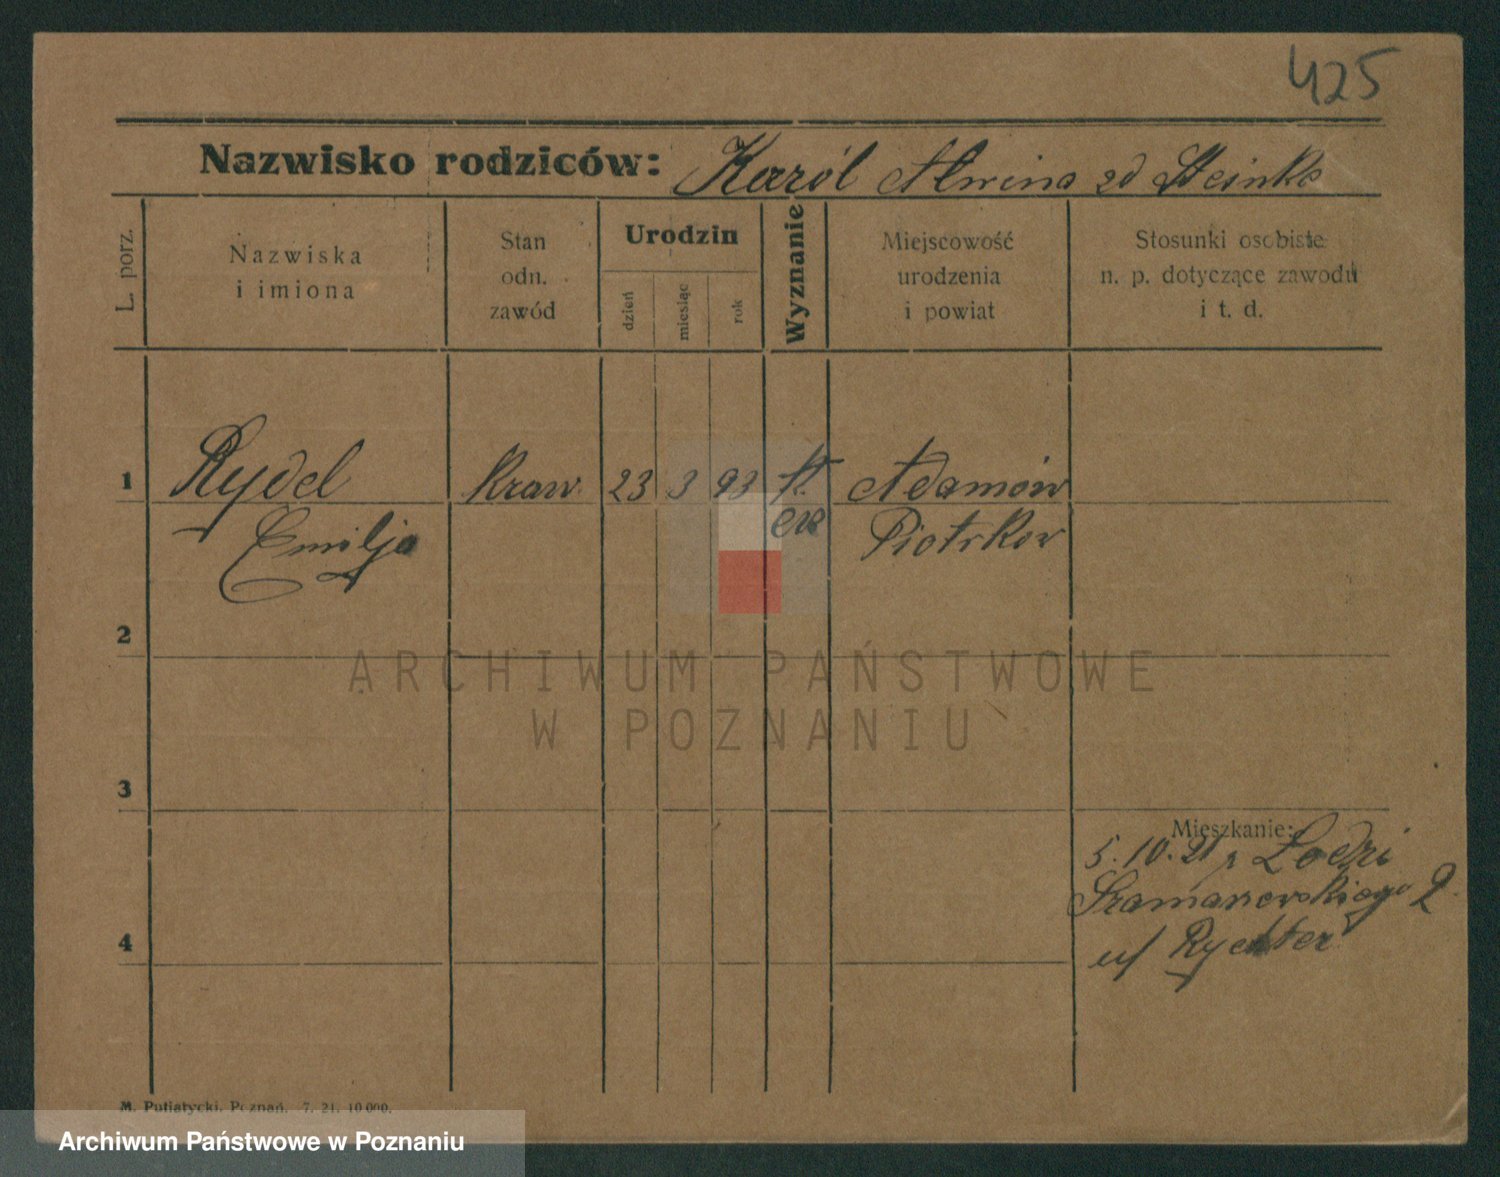 425
Nazwisko rodziców: Karól Alwina zd Steinke
L. porz.
Nazwiska
i imiona
Stan
odn.
zawód
Urodzin
dzień
miesiąc
rok
Wyznanie
Miejscowość
urodzenia
i powiat
Stosunki osobiste
n. p. dotyczące zawodu
i t. d.
1 Rydel Kraw. 23 3 93 Adamów
Emilja ew Piotrkow
2
3
4
Mieszkanie:
5.10.21 z Łodzi
Szamarzewskiego 2
u/ Rychter
M. Putiatycki, Poznań. 7. 21. 10 000.
ARCHIWUM PAŃSTWOWE
W POZNANIU
Archiwum Państwowe w Poznaniu